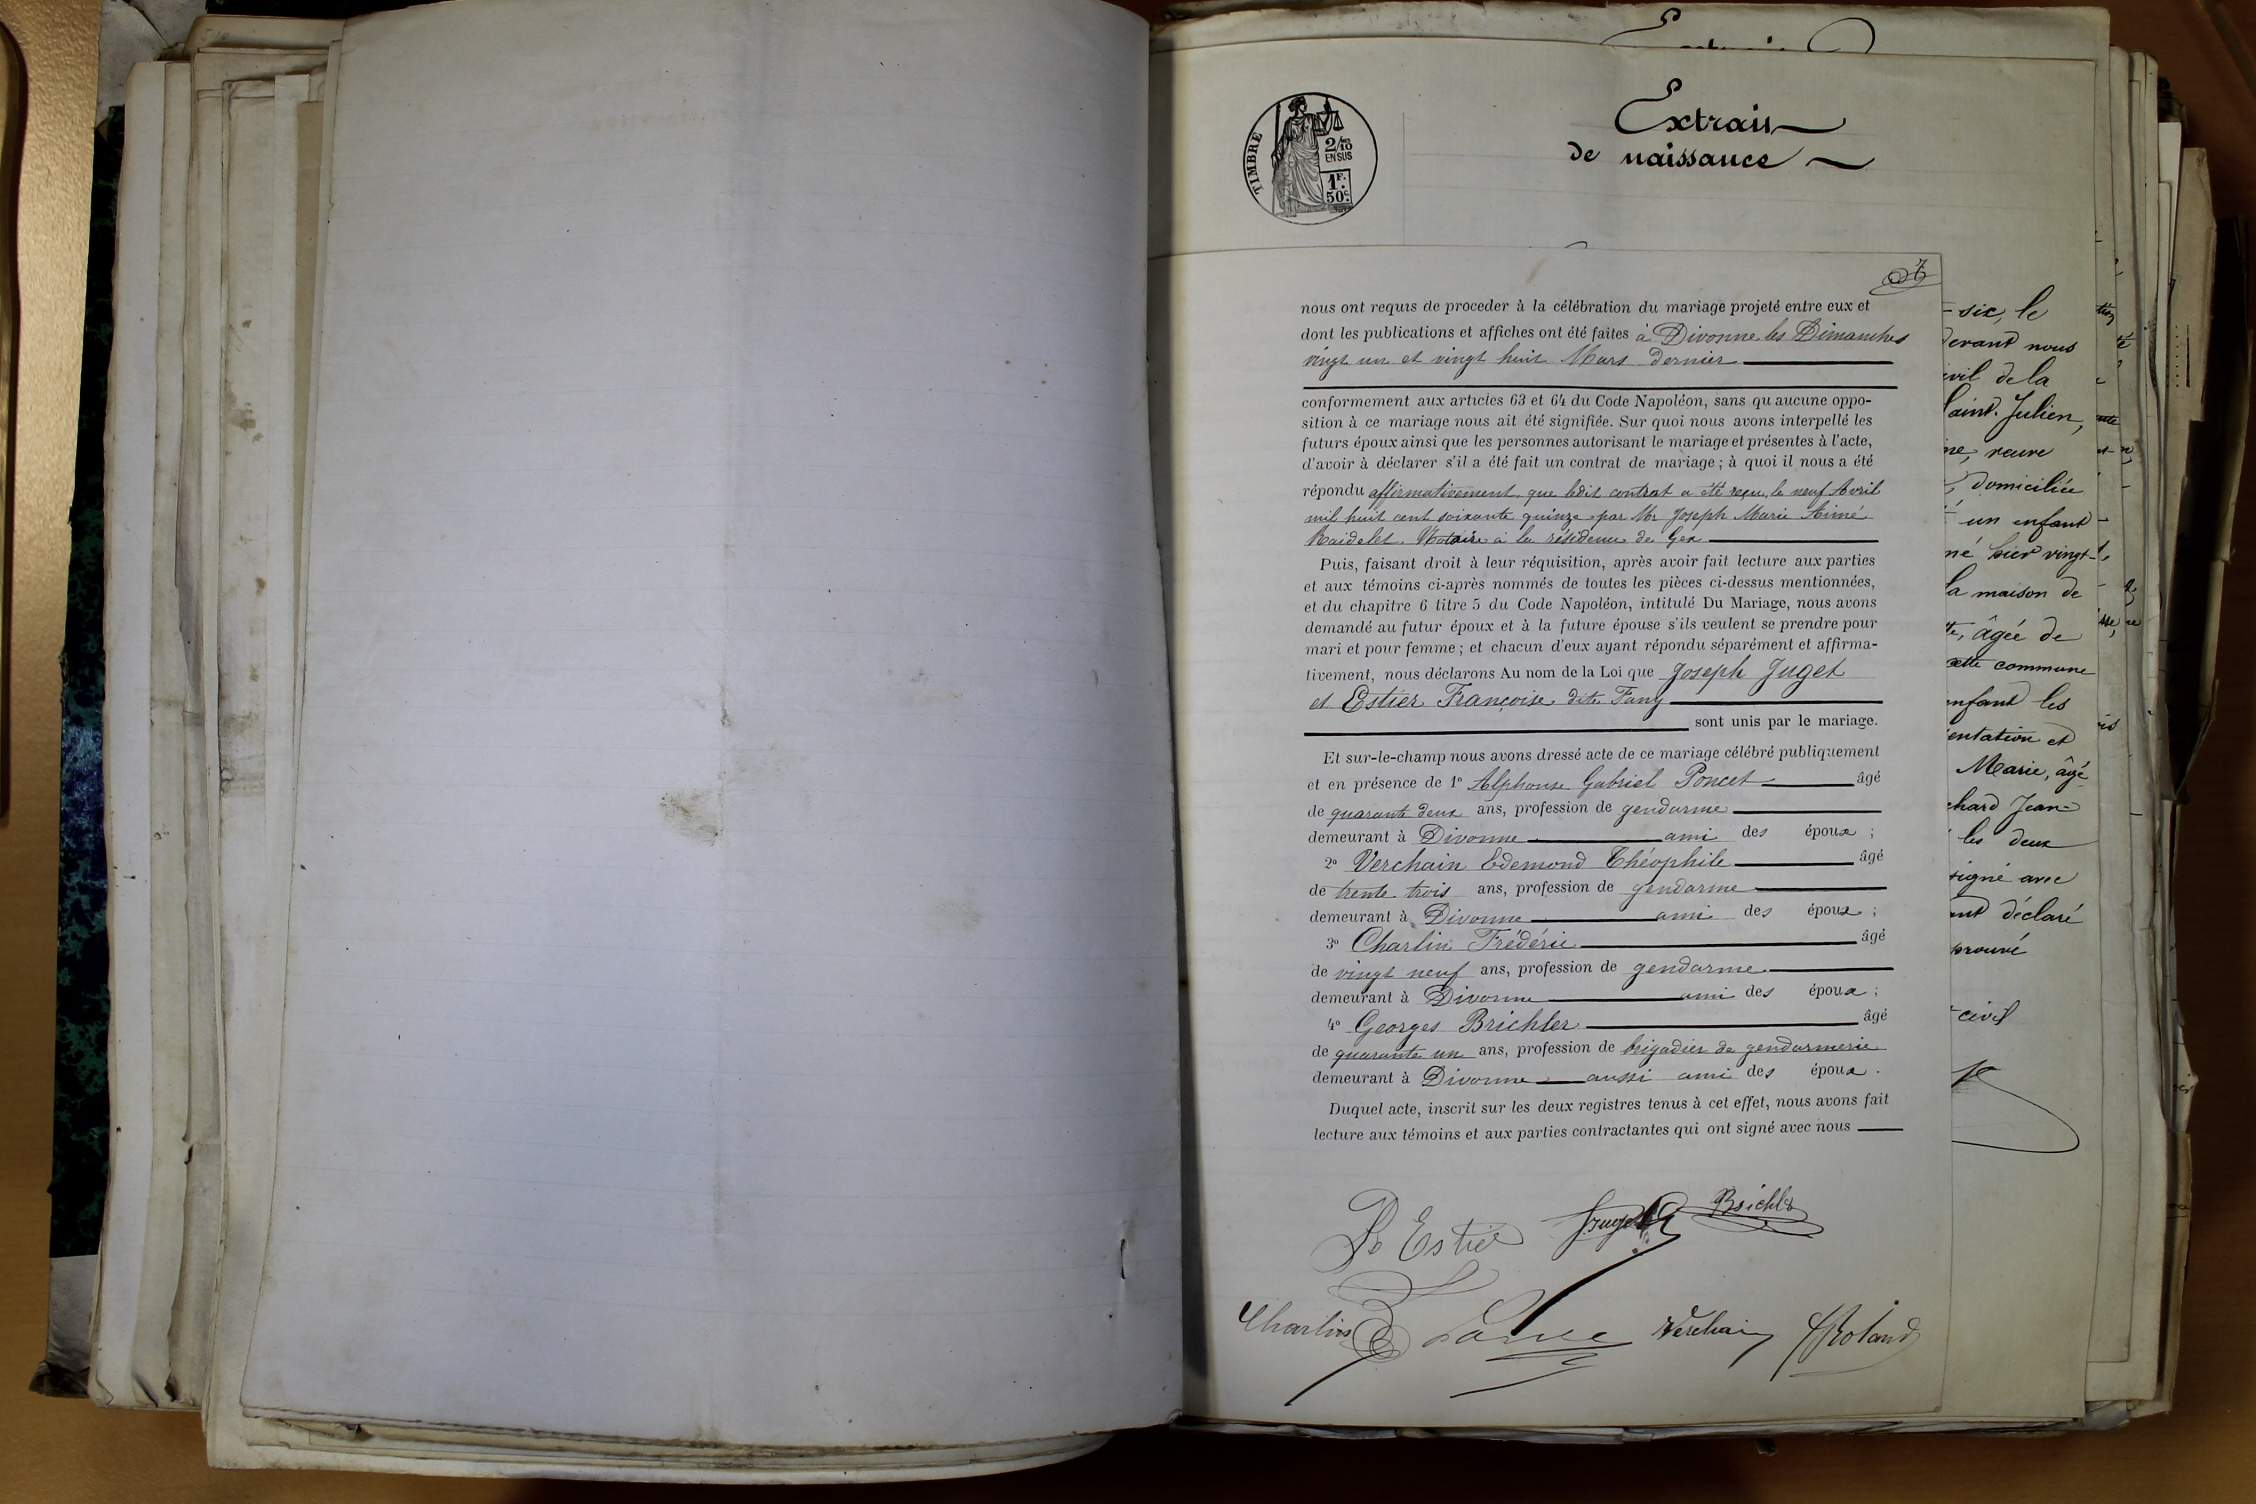 Extrais
de naissance
TIMBRE
2/10
EN SUS
1F.
50c.
7
nous ont requis de proceder à la célébration du mariage projeté entre eux et
dont les publications et affiches ont été faites à Divonne les Dimanches
vingt un et vingt huit Mars dernier
conformement aux articles 63 et 64 du Code Napoléon, sans qu aucune oppo-
sition à ce mariage nous ait été signifiée. Sur quoi nous avons interpellé les
futurs époux ainsi que les personnes autorisant le mariage et présentes à l'acte,
d'avoir à déclarer s'il a été fait un contrat de mariage ; à quoi il nous a été
répondu affirmativement que ledit contrat a été reçu le neuf Avril
mil huit cent soixante quinze par Mr Joseph Marie Aimé
Raidelet Notaire à la résidence de Gex
Puis, faisant droit à leur réquisition, après avoir fait lecture aux parties
et aux témoins ci-après nommés de toutes les pièces ci-dessus mentionnées,
et du chapitre 6 titre 5 du Code Napoléon, intitulé Du Mariage, nous avons
demandé au futur époux et à la future épouse s'ils veulent se prendre pour
mari et pour femme ; et chacun d'eux ayant répondu séparément et affirma-
tivement, nous déclarons Au nom de la Loi que Joseph Juget
et Estier Françoise dite Fany
sont unis par le mariage.
Et sur-le-champ nous avons dressé acte de ce mariage célébré publiquement
et en présence de 1o Alphonse Gabriel Poncet âgé
de quarante deux ans, profession de gendarme
demeurant à Divonne ami des époux ;
2o Verchain Edemond Théophile âgé
de trente trois ans, profession de gendarme
demeurant à Divonne ami des époux ;
3o Charlin Frédéric âgé
de vingt neuf ans, profession de gendarme
demeurant à Divonne ami des époux ;
4o Georges Brichler âgé
de quarante un ans, profession de brigadier de gendarmerie
demeurant à Divonne aussi ami des époux .
Duquel acte, inscrit sur les deux registres tenus à cet effet, nous avons fait
lecture aux témoins et aux parties contractantes qui ont signé avec nous
Estier Juget Brichler
Charlin Verchain Roland
six, le
devant nous
de la
Saint-Julien,
veuve
domiciliée
un enfant
né hier vingt-
la maison de
âgée de
cette commune
enfant les
et
Marie, âgé
Jean-
les deux
signé avec
déclaré
civil